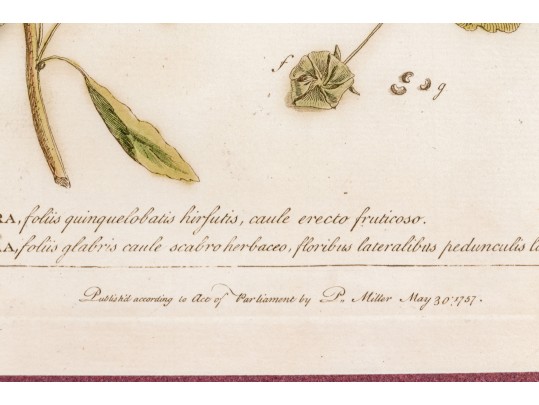 f
g
RA, foliis quinquelobatis hirsutis, caule erecto fruticoso.
RA, foliis glabris caule scabro herbaceo, floribus lateralibus pedunculis
Publish'd according to Act of Parliament by P. Miller May 30, 1757.